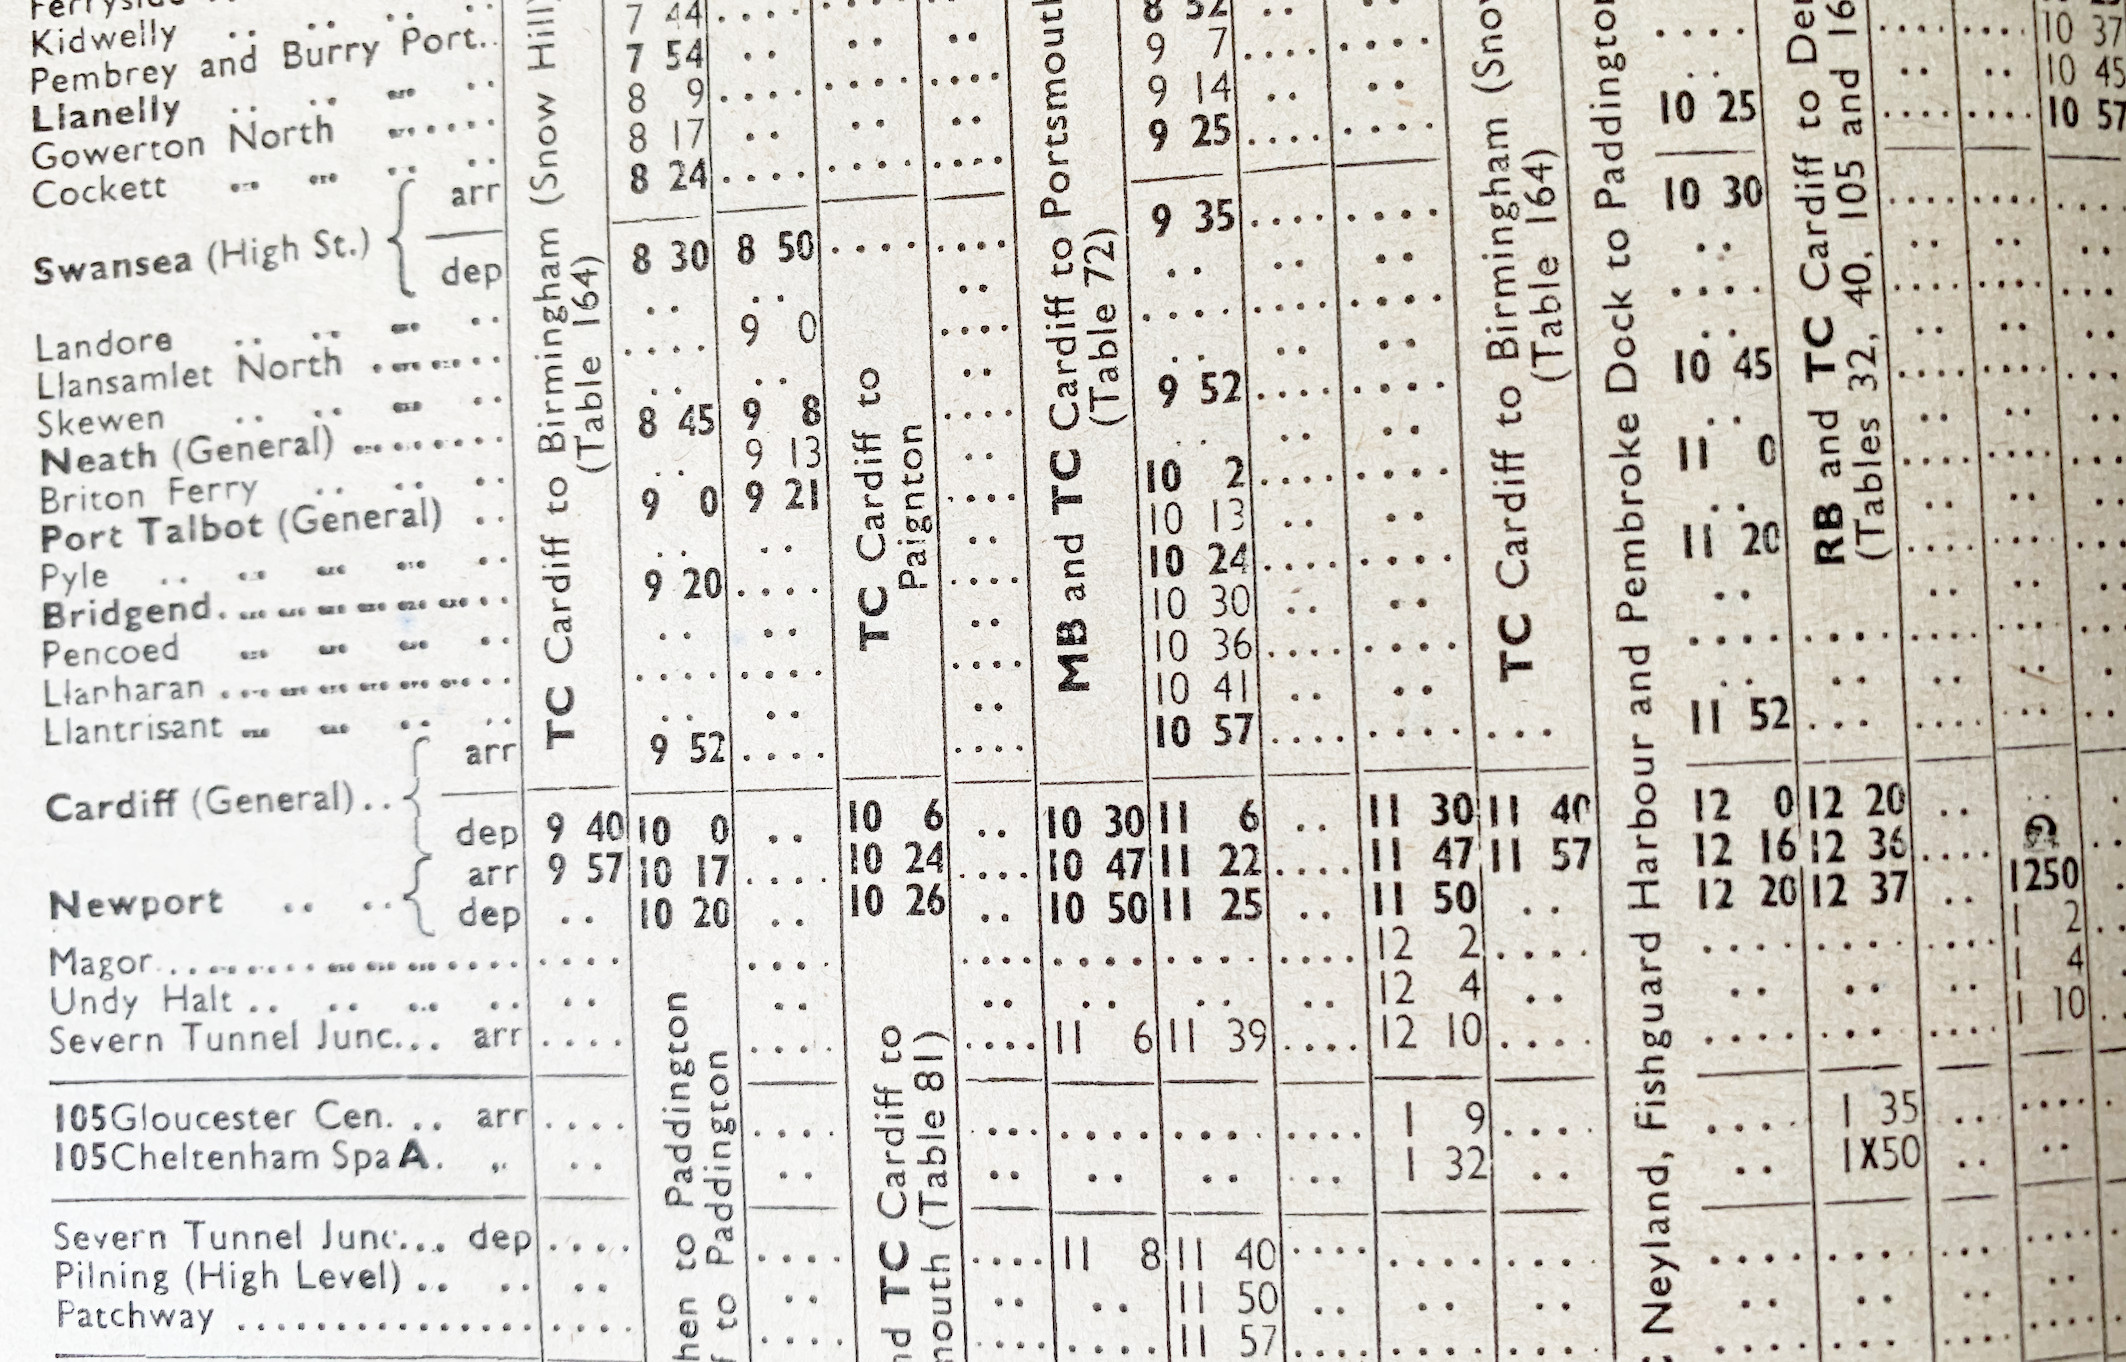 Kidwelly
Pembrey and Burry Port.. 7 44
Llanelly 7 54 8 52
Gowerton North 8 9 9 7 10 37
Cockett 8 17 9 14 10 45
Swansea (High St.) arr 8 24 9 25 10 25 10 57
dep 8 30 8 50 9 35 10 30
Landore
Llansamlet North 9 0
Skewen
Neath (General) 8 45 9 8 9 52 10 45
Briton Ferry 9 13
Port Talbot (General) 9 0 9 21 10 2 11 0
Pyle 10 13
Bridgend 9 20 10 24 11 20
Pencoed 10 30
Llanharan 10 36
Llantrisant 10 41
Cardiff (General) arr 9 52 10 57 11 52
dep 9 40 10 0 10 6 10 30 11 6 11 30 11 40 12 0 12 20
Newport arr 9 57 10 17 10 24 10 47 11 22 11 47 11 57 12 16 12 36
dep 10 20 10 26 10 50 11 25 11 50 12 20 12 37 1250
Magor 12 2 1 2
Undy Halt 12 4 1 4
Severn Tunnel Junc... arr 11 6 11 39 12 10 1 10
105Gloucester Cen. .. arr 1 9 1 35
105Cheltenham Spa A. „ 1 32 1X50
Severn Tunnel Junc... dep 11 8 11 40
Pilning (High Level) 11 50
Patchway 11 57
TC Cardiff to Birmingham (Snow Hill)
(Table 164)
to Paddington
to Paddington
TC Cardiff to
Paignton
TC Cardiff to
(Table 81)
MB and TC Cardiff to Portsmouth
(Table 72)
TC Cardiff to Birmingham (Snow
(Table 164)
Neyland, Fishguard Harbour and Pembroke Dock to Paddington
RB and TC Cardiff to
(Tables 32, 40, 105 and